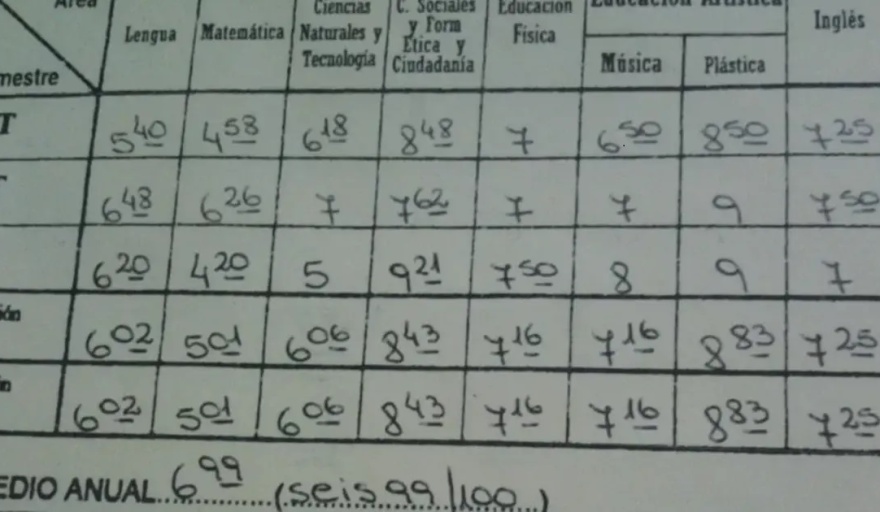 Area Ciencias C. Sociales Educación Educación Artística
Lengua Matemática Naturales y y Form Física Inglés
Tecnología Etica y
mestre Ciudadanía Música Plástica
T 5 40 4 58 6 18 8 48 7 6.50 8 50 7 25
6 48 6 26 7 7 62 7 7 9 7 50
6 20 4 20 5 9 21 7 50 8 9 7
ión 6 02 5 01 6 06 8 43 7 16 7 16 8 83 7 25
n 6 02 5 01 6 06 8 43 7 16 7 16 8 83 7 25
EDIO ANUAL 6 99 (seis 99/100)